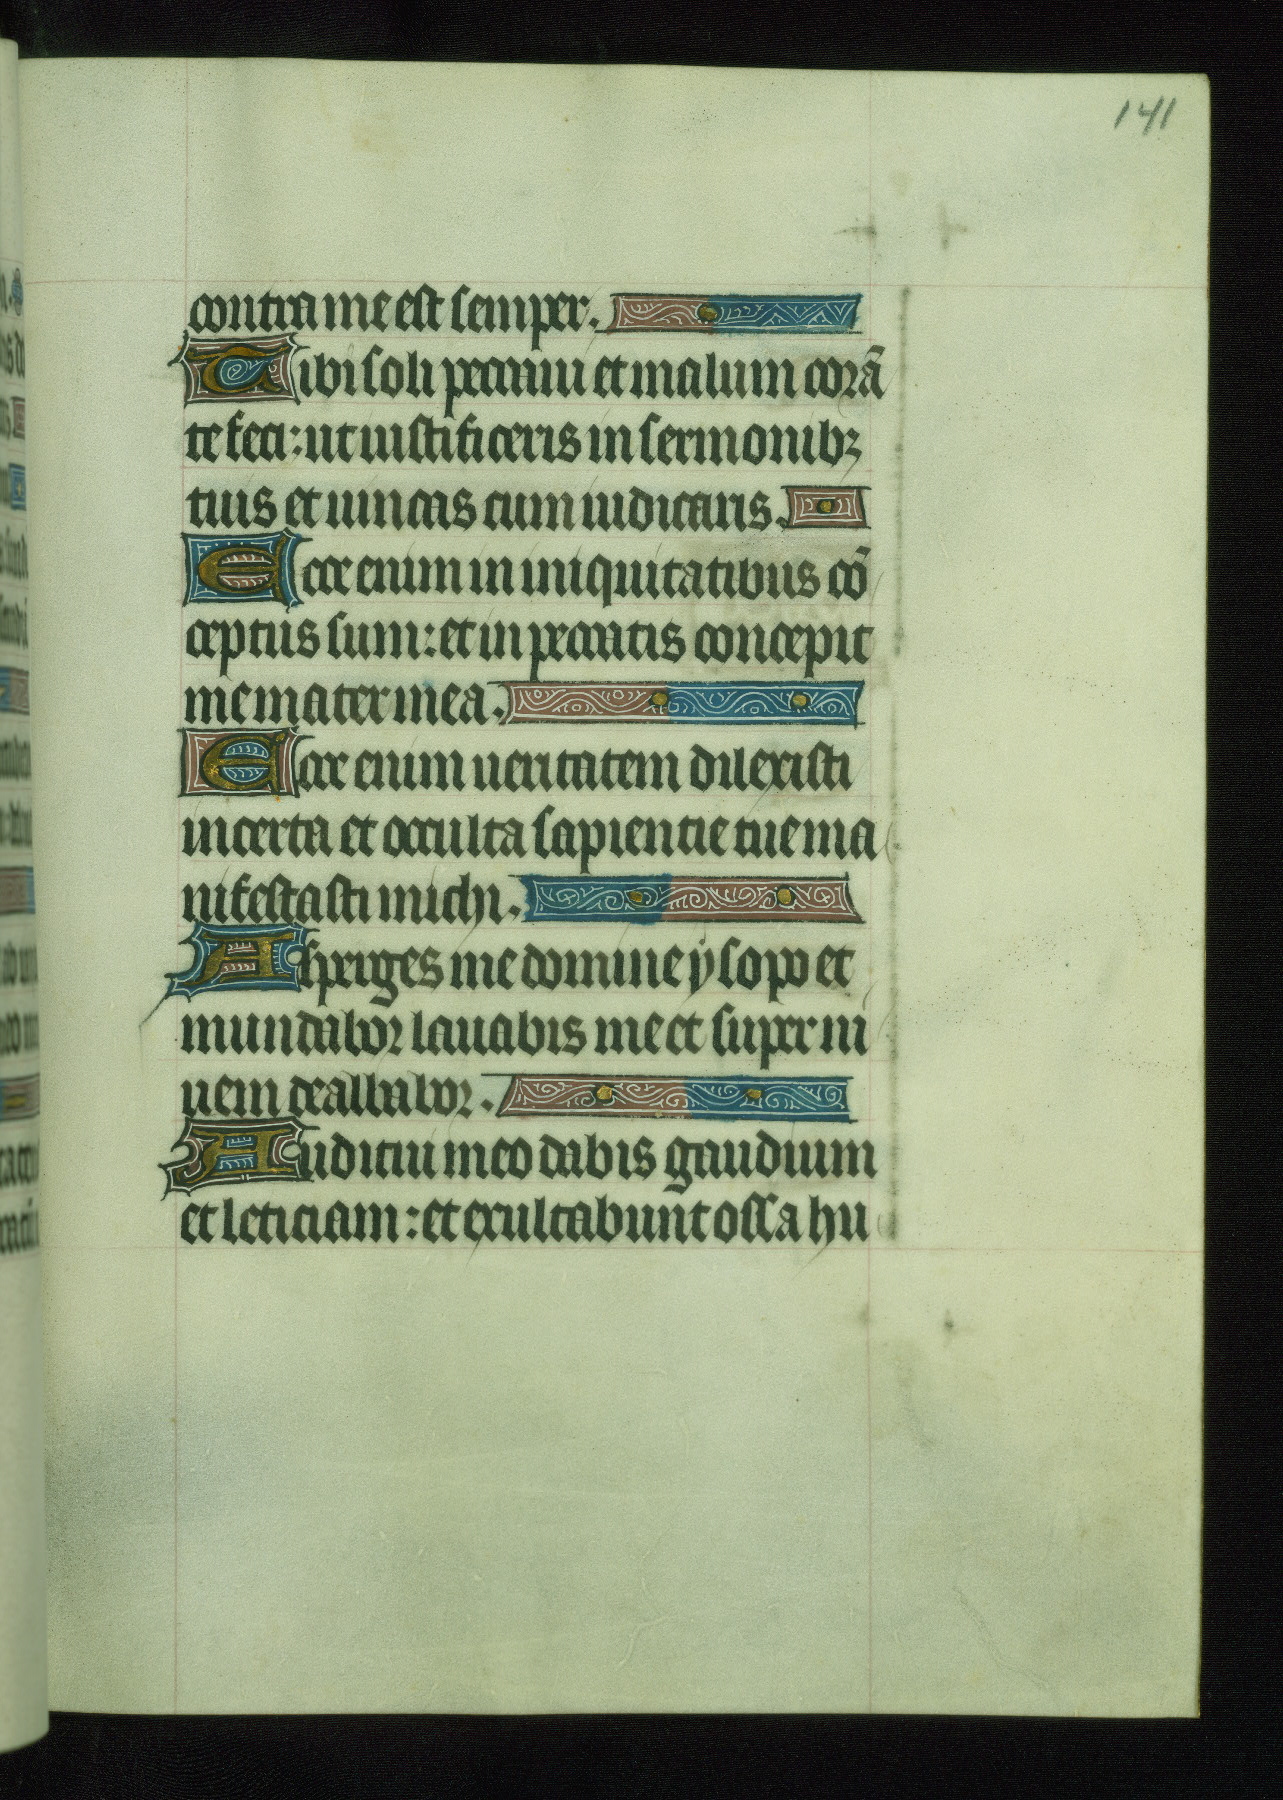 141
contra me est semper.
Tibi soli peccaui et malum corā
te feci: ut iustificeris in sermonibꝫ
tuis et uincas cum iudicaris.
Ecce enim in iniquitatibus cō
ceptus sum: et in peccatis concepit
me mater mea.
Ecce enim ueritatem dilexisti
incerta et occulta sapientie tue ma
nifestasti michi.
Asperges me domine ẏsopo et
mundabor lauabis me et super ni
uem dealbabor.
Auditui meo dabis gaudium
et leticiam: et exultabunt ossa hu